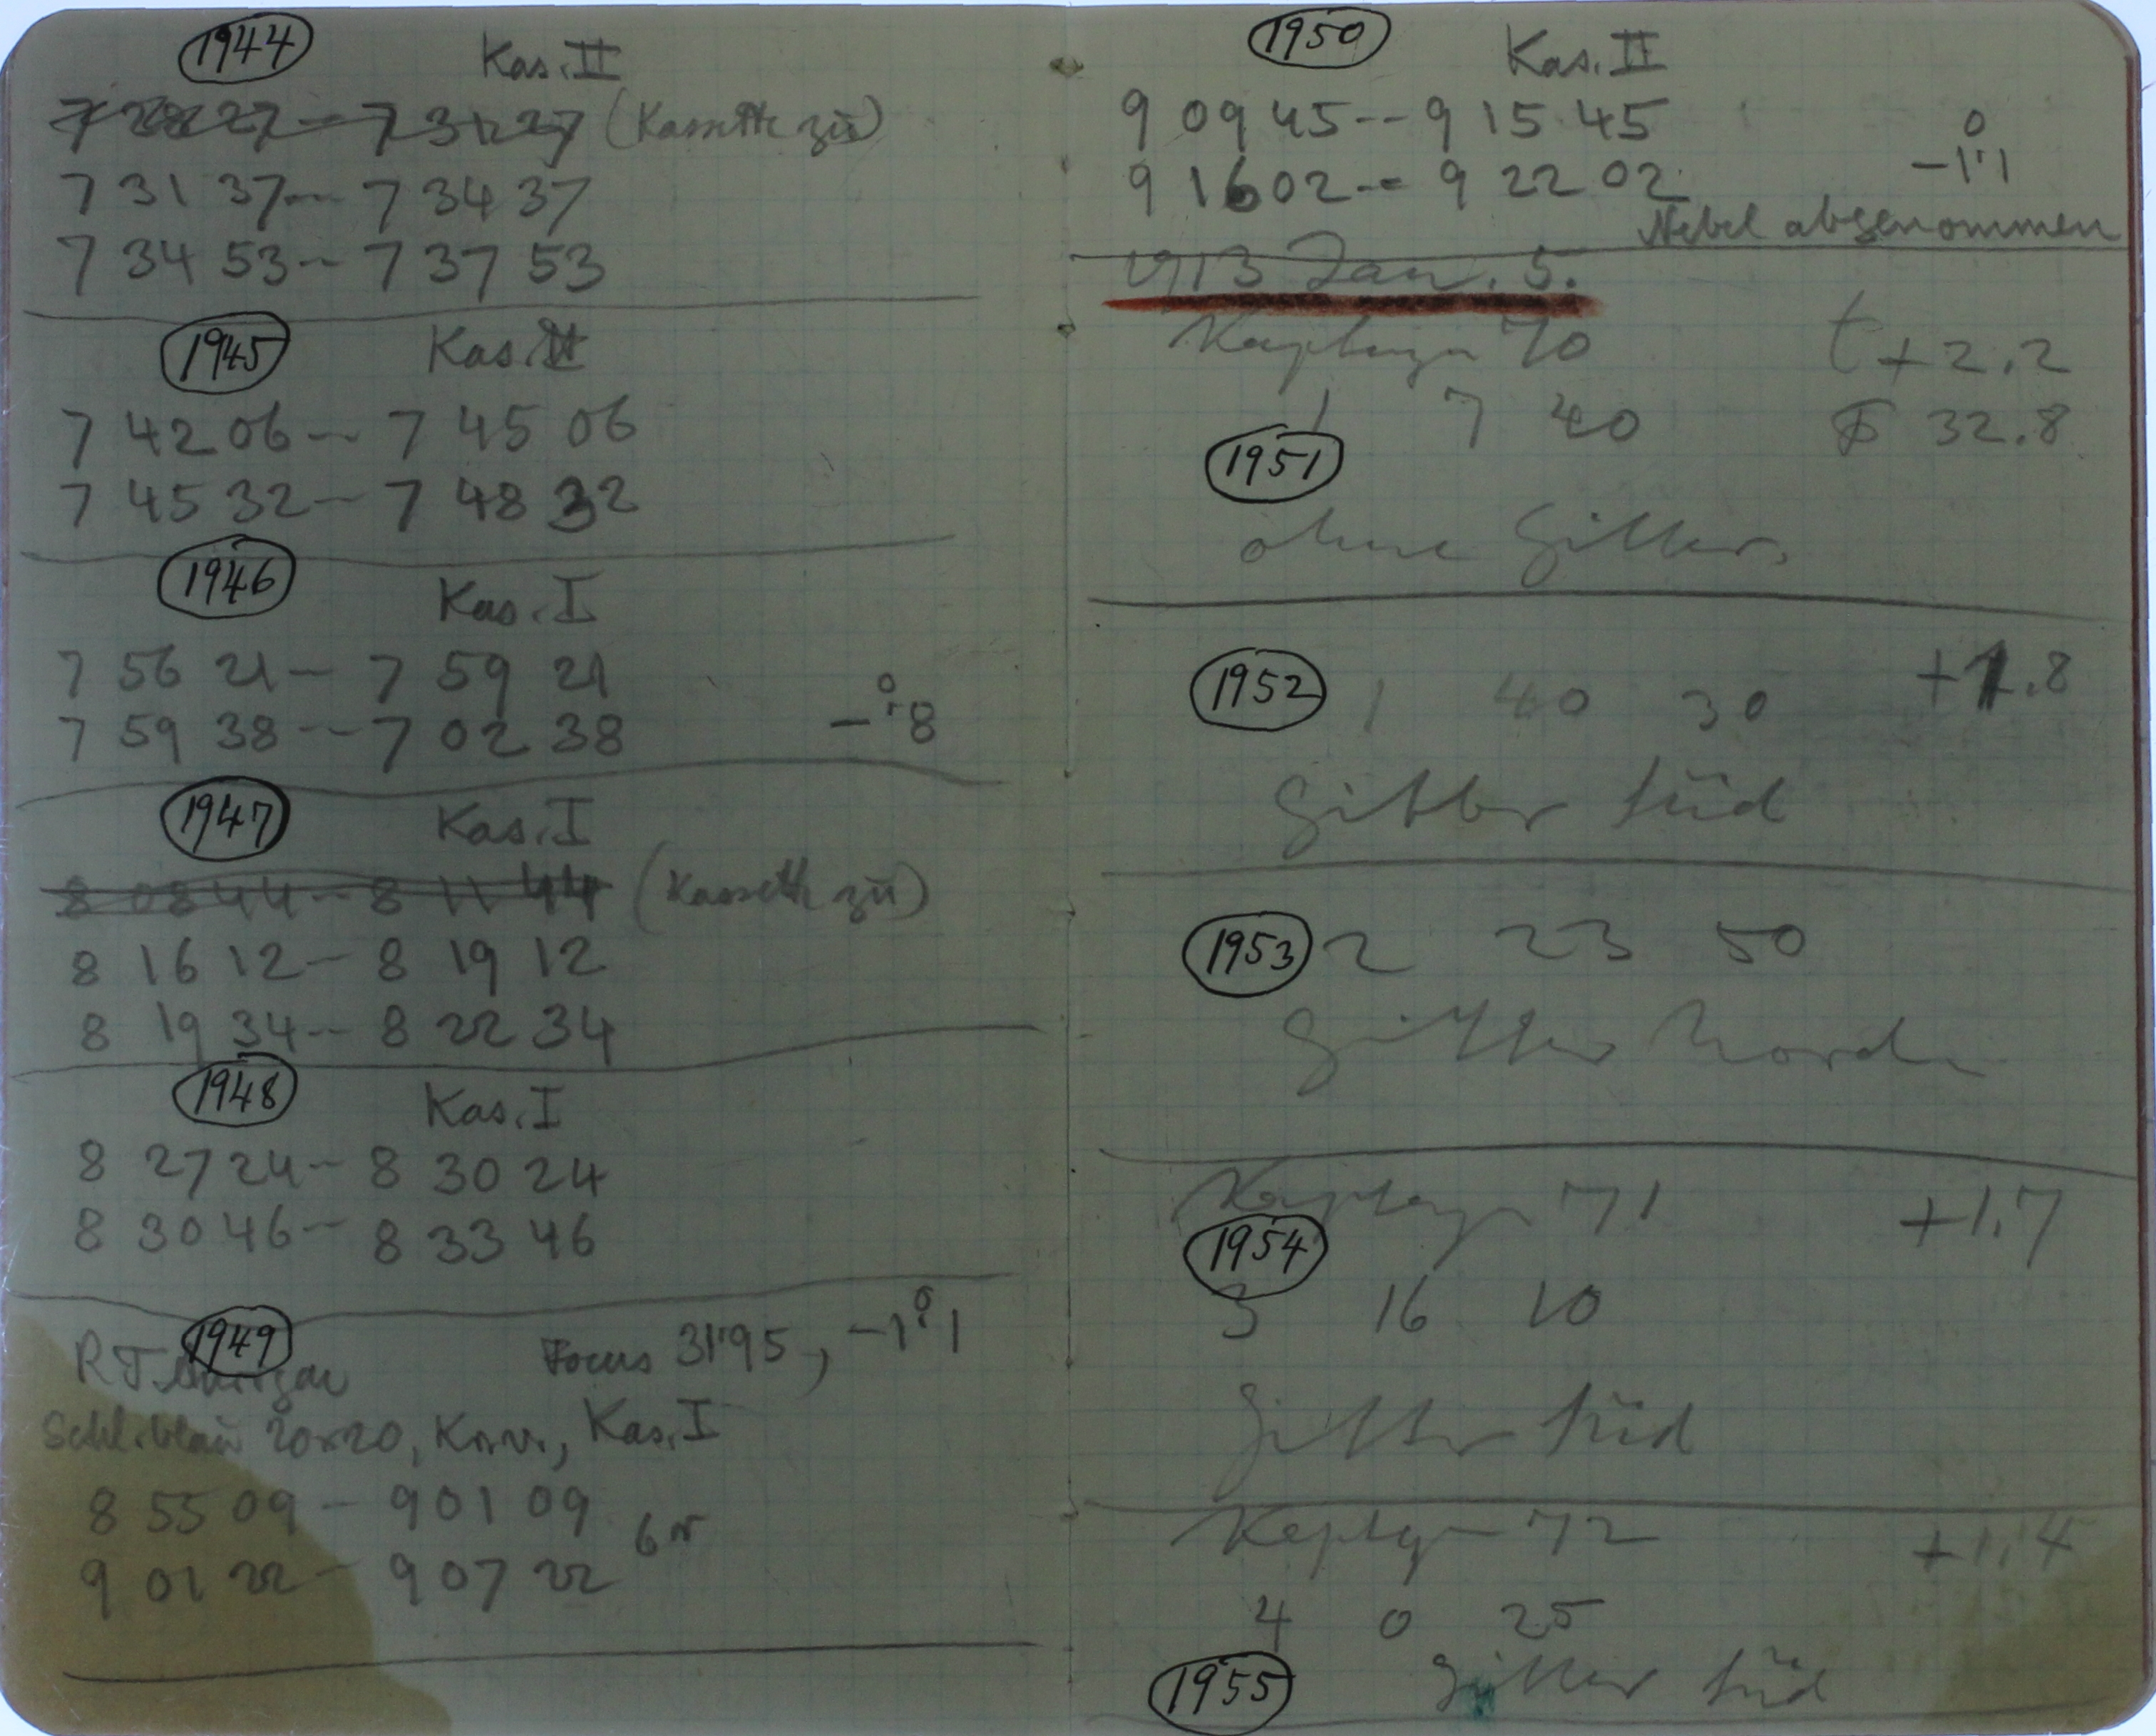 1944 Kas. II
7 28 27 -- 7 31 27 (Kassette zu)
7 31 37 -- 7 34 37
7 34 53 -- 7 37 53
1945 Kas. II
7 42 06 -- 7 45 06
7 45 32 -- 7 48 32
1946 Kas. I
7 56 21 -- 7 59 21
7 59 38 -- 7 02 38 -°.8
1947 Kas. I
8 08 44 -- 8 11 44 (Kassette zu)
8 16 12 -- 8 19 12
8 19 34 -- 8 22 34
1948 Kas. I
8 27 24 -- 8 30 24
8 30 46 -- 8 33 46
1949
R T Aurigae Focus 31.95, -1°.1
Schl. blau 20x20, Kas. I
8 55 09 - 9 01 09
9 01 22 - 9 07 22 6m
1950 Kas. II
9 09 45 -- 9 15 45
9 16 02 -- 9 22 02 -1°.1
Nebel abgenommen
1913 Jan. 5.
Kapteyn 70 t +2.2
1 7 40 F 32.8
1951
ohne Gitter.
1952 1 40 30 +1.8
Gitter Süd
1953 2 23 50
Gitter Nord
Kapteyn 71 +1.7
1954
3 16 10
Gitter Süd
Kapteyn 72 +1.4
4 0 25
1955 Gitter Süd